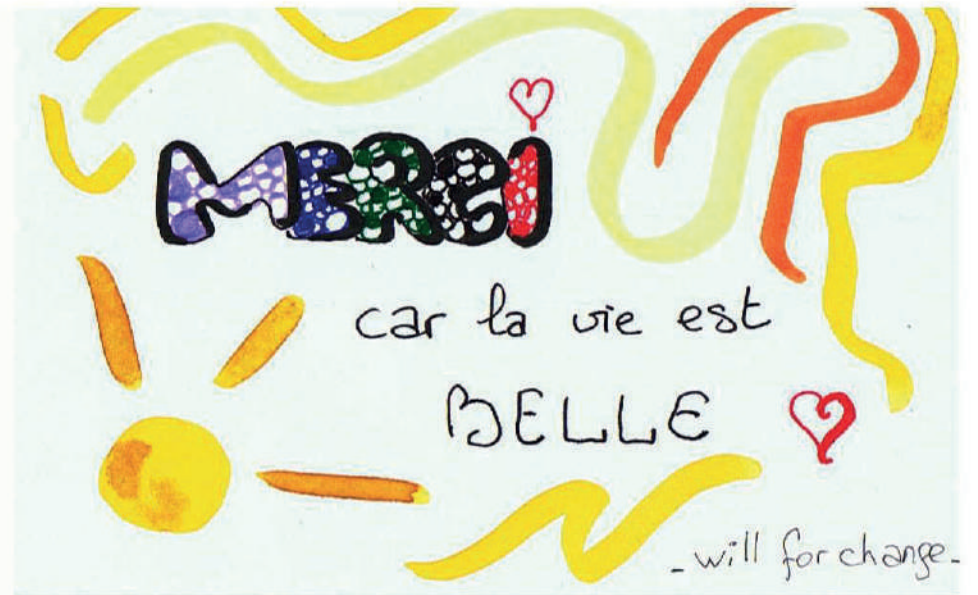 MERCi
car la vie est
BELLE
- will for change -